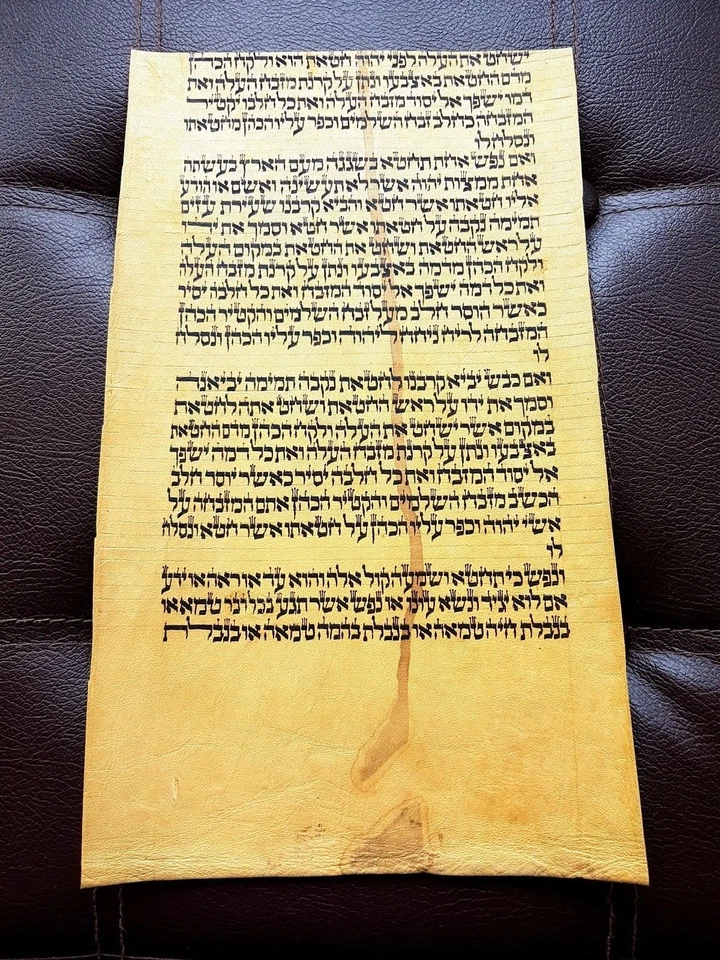 ישחט את העלה לפני יהוה חטאת הוא ולקח הכהן
מדם החטאת באצבעו ונתן על קרנת מזבח העלה ואת
דמו ישפך אל יסוד מזבח העלה ואת כל חלבו יקטיר
המזבחה כחלב זבח השלמים וכפר עליו הכהן מחטאתו
ונסלח לו
ואם נפש אחת תחטא בשגגה מעם הארץ בעשתה
אחת ממצות יהוה אשר לא תעשינה ואשם או הודע
אליו חטאתו אשר חטא והביא קרבנו שעירת עזים
תמימה נקבה על חטאתו אשר חטא וסמך את ידו
על ראש החטאת ושחט את החטאת במקום העלה
ולקח הכהן מדמה באצבעו ונתן על קרנת מזבח העלה
ואת כל דמה ישפך אל יסוד המזבח ואת כל חלבה יסיר
כאשר הוסר חלב מעל זבח השלמים והקטיר הכהן
המזבחה לריח ניחח ליהוה וכפר עליו הכהן ונסלח
לו
ואם כבש יביא קרבנו לחטאת נקבה תמימה יביאנה
וסמך את ידו על ראש החטאת ושחט אתה לחטאת
במקום אשר ישחט את העלה ולקח הכהן מדם החטאת
באצבעו ונתן על קרנת מזבח העלה ואת כל דמה ישפך
אל יסוד המזבח ואת כל חלבה יסיר כאשר יוסר חלב
הכשב מזבח השלמים והקטיר הכהן אתם המזבחה על
אשי יהוה וכפר עליו הכהן על חטאתו אשר חטא ונסלח
לו
ונפש כי תחטא ושמעה קול אלה והוא עד או ראה או ידע
אם לוא יגיד ונשא עונו או נפש אשר תגע בכל דבר טמא או
בנבלת חיה טמאה או בנבלת בהמה טמאה או בנבלת